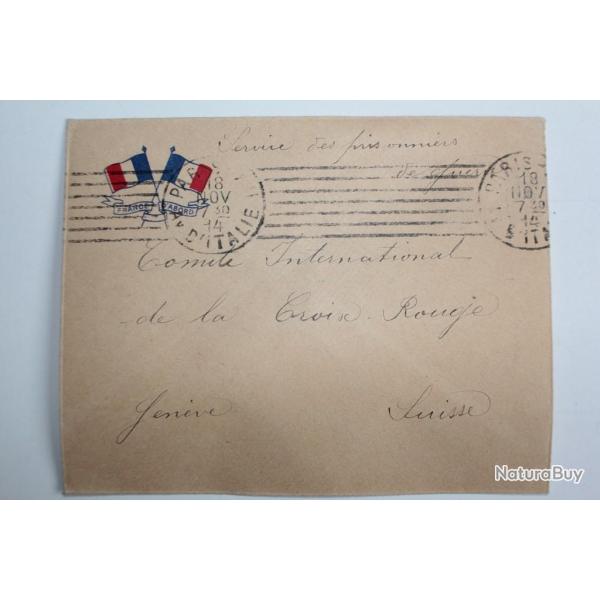 Service des prisonniers
de guerre
FRANCE D'ABORD
PARIS
18
NOV
7 30
14
D'ITALIE
PARIS
18
NOV
7 30
14
D'ITA
Comité International
de la Croix-Rouge
Genève Suisse
NaturaBuy